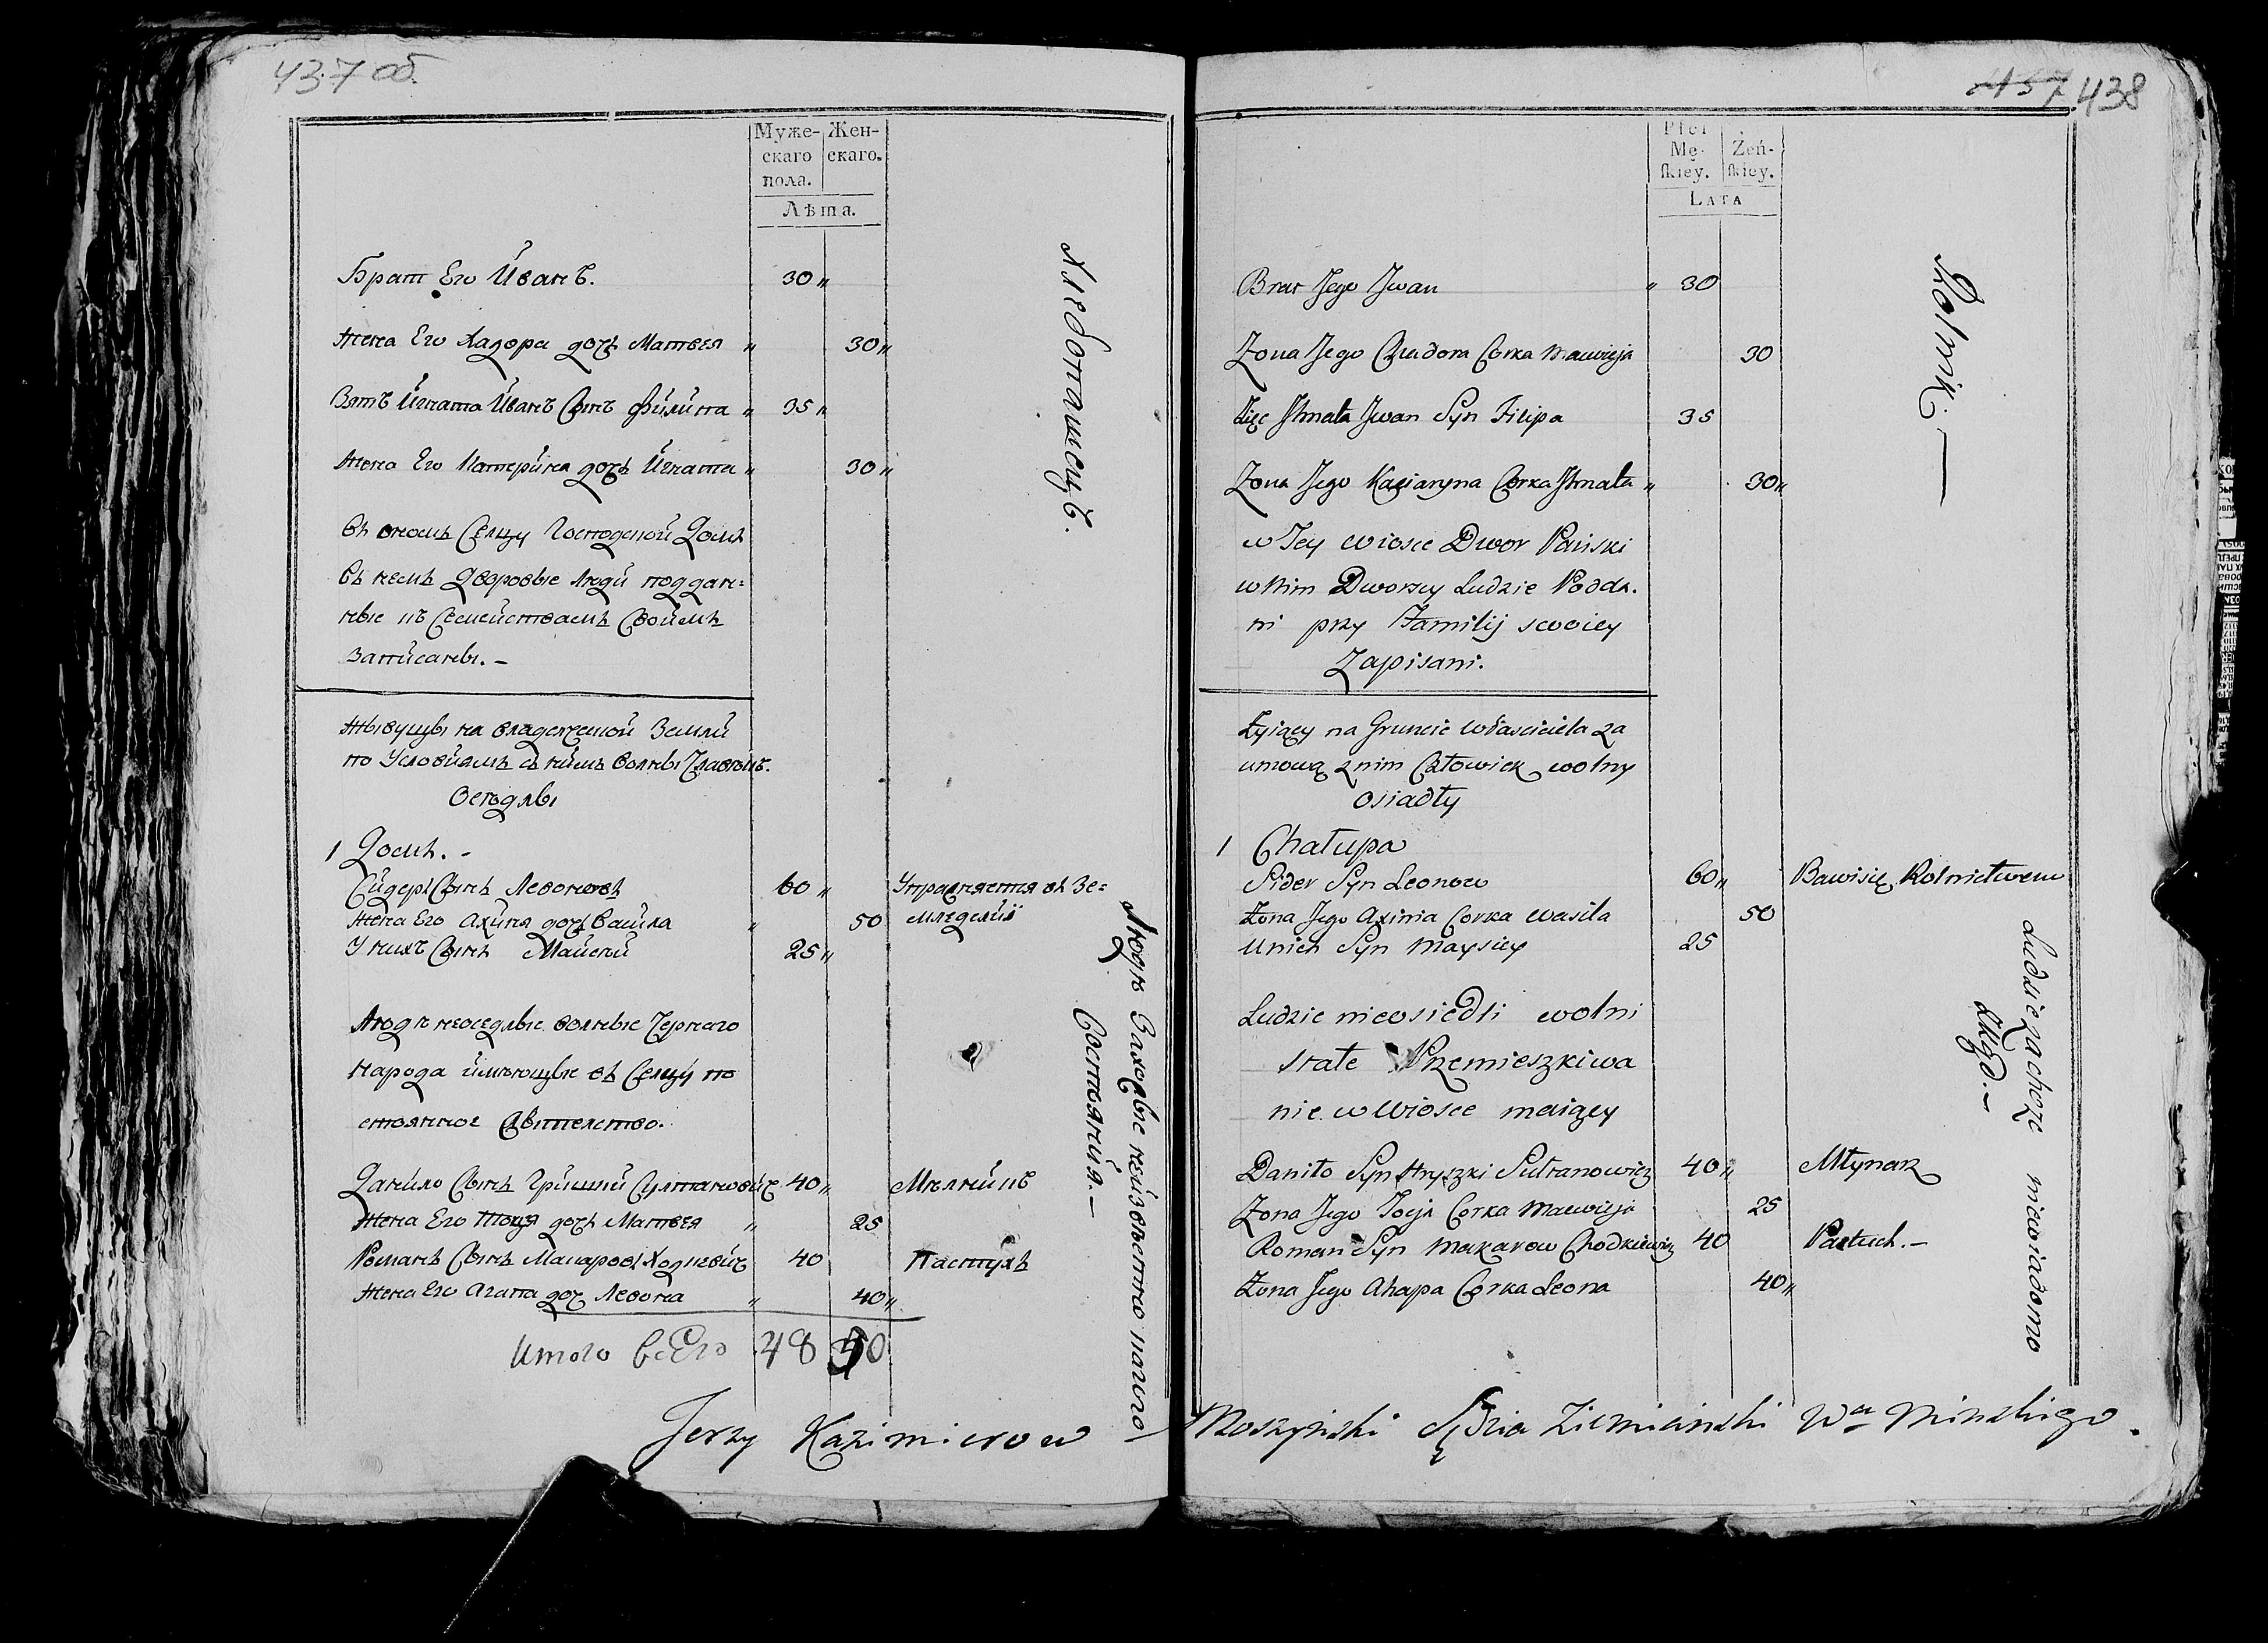 437 об.
Муже-
скаго
пола.
Жен-
скаго.
Лѣта.
Братъ Его Иванъ. 30 „
Жена Его Хадора дочь Матвея „ 30 „
Зять Игната Иванъ Сынъ Филипа „ 35 „
Жена Его Катерина дочь Игната „ 30 „
Въ ономъ Селцу Господской Домъ
въ немъ Дворовые люди поддан=
ные къ Семействамъ Своимъ
Записаны. –
Хлебопашецъ.
Жывущы на владелческой Земли
по Условиямъ съ нимъ волны
Оседлы
1 Домъ. –
Сидеръ Сынъ Левоновъ 60 „ Упражняется въ Зе=
Жена Его Ахиня дочь Васила „ 50 мледелии
У нихъ Сынъ Майсей 25 „
Люди неоседлые волные Чернаго
Народа имеющые въ Селцу по
стоянное Жытелство.
Данило Сынъ Гришки 40 „ Мелникъ
Жена Его Тоция дочь Матвея „ 25
Романъ Сынъ Макаровъ Ходкевичъ 40 Пастухъ
Жена Его Агапа доч Левона „ 40 „
Итого всего 48 50
Люди Захожые неизвестно какого
Состояния. –
Jerzy Kazimierow
457 438
Płci
Mę-
ſkiey.
Żeń-
ſkiey.
LATA
Brat Jego Jwan „ 30
Zona Jego Chadora Corka Macwieja 30
Zięć Jhnata Jwan Syn Filipa 35
Zona Jego Kaciaryna Corka Jhnata „ 30 „
w Tey wiosce Dwor Pański
w Nim Dworscy Ludzie Podda.
ni przy Familij swoiey
Zapisani.
Rolnik. —
Żyiący na Gruncie własciciela za
umową z nim Człowiek wolny
osiadły
1 Chałupa
Sider Syn Leonow 60 „ Bawisię Rolnictwem
Żona Jego Axinia Corka Wasila 50
U nich Syn Maysiey 25
Ludzie nieosiedli wolni
stałe Przemieszkiwa
nie w Wiosce maiący
Daniło Syn Hryszki Sułtanowicz 40 „ Młynarz
Zona Jego Tocja Corka Macwieja 25
Roman Syn Makarow Chodkiewicz 40 Pastuch. –
Żona Jego Ahapa Corka Leona 40 „
Ludzie zachoze niewiadomo
Moszyński Sędzia Ziemiański Wa Minskiego.